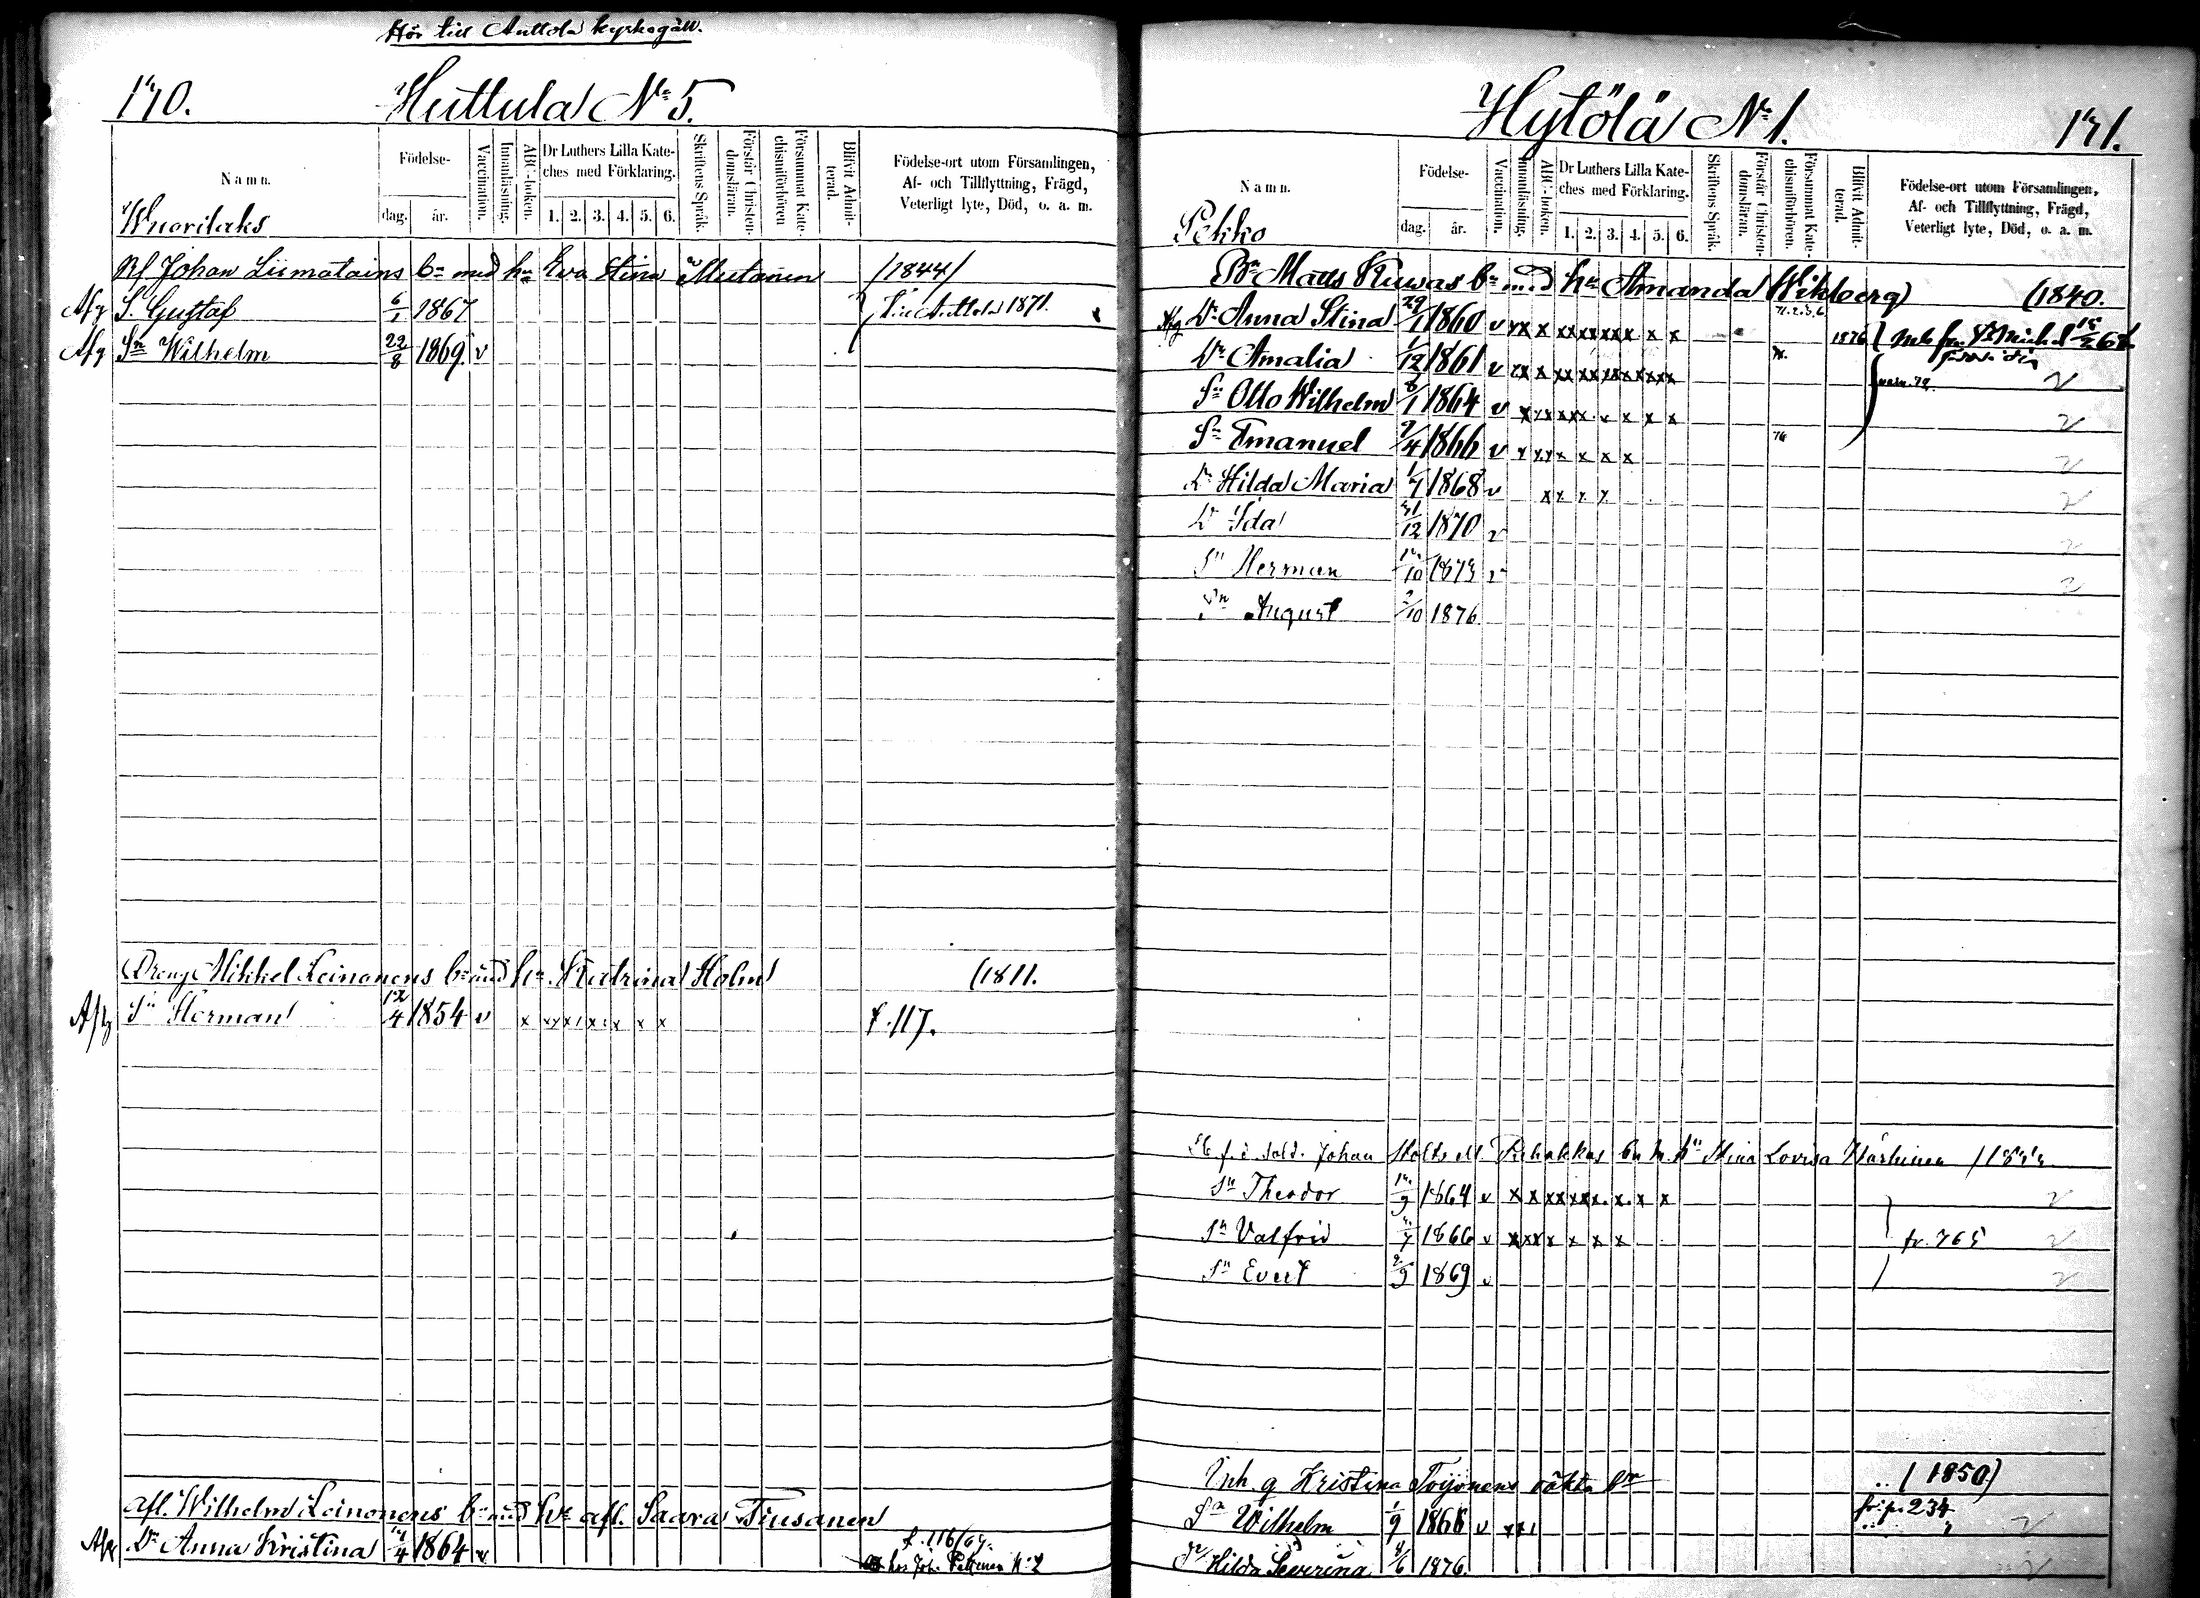 Hör till Anttola kyrkogäll.
170. Huttula No 5.
Namn.
Födelse-
dag. år.
Vaccination.
Innanläsning.
ABC-boken.
Dr Luthers Lilla Kate-
ches med Förklaring.
1. 2. 3. 4. 5. 6.
Skriftens Språk.
Förstår Christen-
domsläran.
Försummat Kate-
chismiförhören
Blifvit Admit-
terad.
Födelse-ort utom Församlingen,
Af- och Tillflyttning, Frägd,
Veterligt lyte, Död, o. a. m.
Wuorilaks
Johan Liimatains bn med hu Eva Stina Mutanen (1844)
Afg S. Gustaf 6/1 1867 Anttola 1871.
Afg Sn Wilhelm 22/8 1869. v
Dreng Mikkel Leinonens bn med hu Katrina Holm (1811.
Afg Sn Herman 12/4 1854 v x x x x x x f. 117.
afl. Wilhelm Leinonens bn med hu afl. Saara Tiusanen
Afg Dr Anna Kristina 4 1864 v f. 116
hos Joh. Pekkanen N:2
Hytölä No 1. 171.
Namn.
Födelse-
dag. år.
Vaccination.
Innanläsning.
ABC-boken.
Dr Luthers Lilla Kate-
ches med Förklaring.
1. 2. 3. 4. 5. 6.
Skriftens Språk.
Förstår Christen-
domsläran.
Försummat Kate-
chismiförhören.
Blifvit Admit-
terad.
Födelse-ort utom Församlingen,
Af- och Tillflyttning, Frägd,
Veterligt lyte, Död, o. a. m.
Pekko
Bn Matts Kuwas bn med hu Amanda Wikberg (1840.
Afg Dr Anna Stina 29/1 1860 v xx x xx xx xx x x x 1876
Dr Amalia 1/12 1861 v xx x xx xx xx xx xx
Sn Otto Wilhelm 8/1 1864 v x xx xxx v x x x
Sn Emanuel 9/4 1866 v x xx x x x x 76
Dr Hilda Maria 1/7 1868 v xx x x
Dr Ida 31/12 1870 v
Sn Herman 10 1873 v
Sn August 2/10 1876.
f. d. sold. Johan Stolt bn m. hu Stina Lovisa
Sn Theodor 9 1864 v x x xx xx x x x x
Sn Valfrid 7 1866 v xxx x x x x fr. 765
Sn Evert 2/9 1869 v
Inh. q Kristina Toijonens oäkta bn (1850)
Sn Wilhelm 1/9 1868 v fr. p. 234
Dr Hilda Severina 8/6 1876.